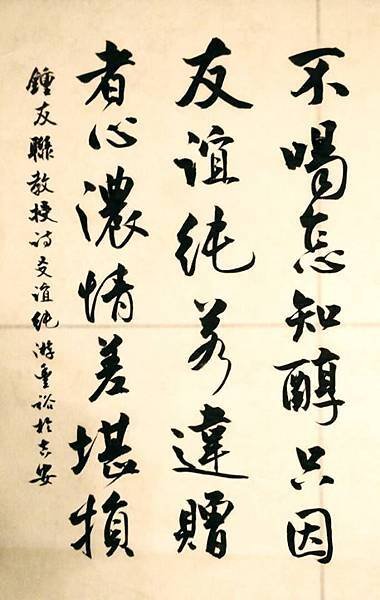 不喝怎知醇只因
友誼純若違贈
者心濃情差堪損
鍾友聯教授詩友誼純游重裕於吉安